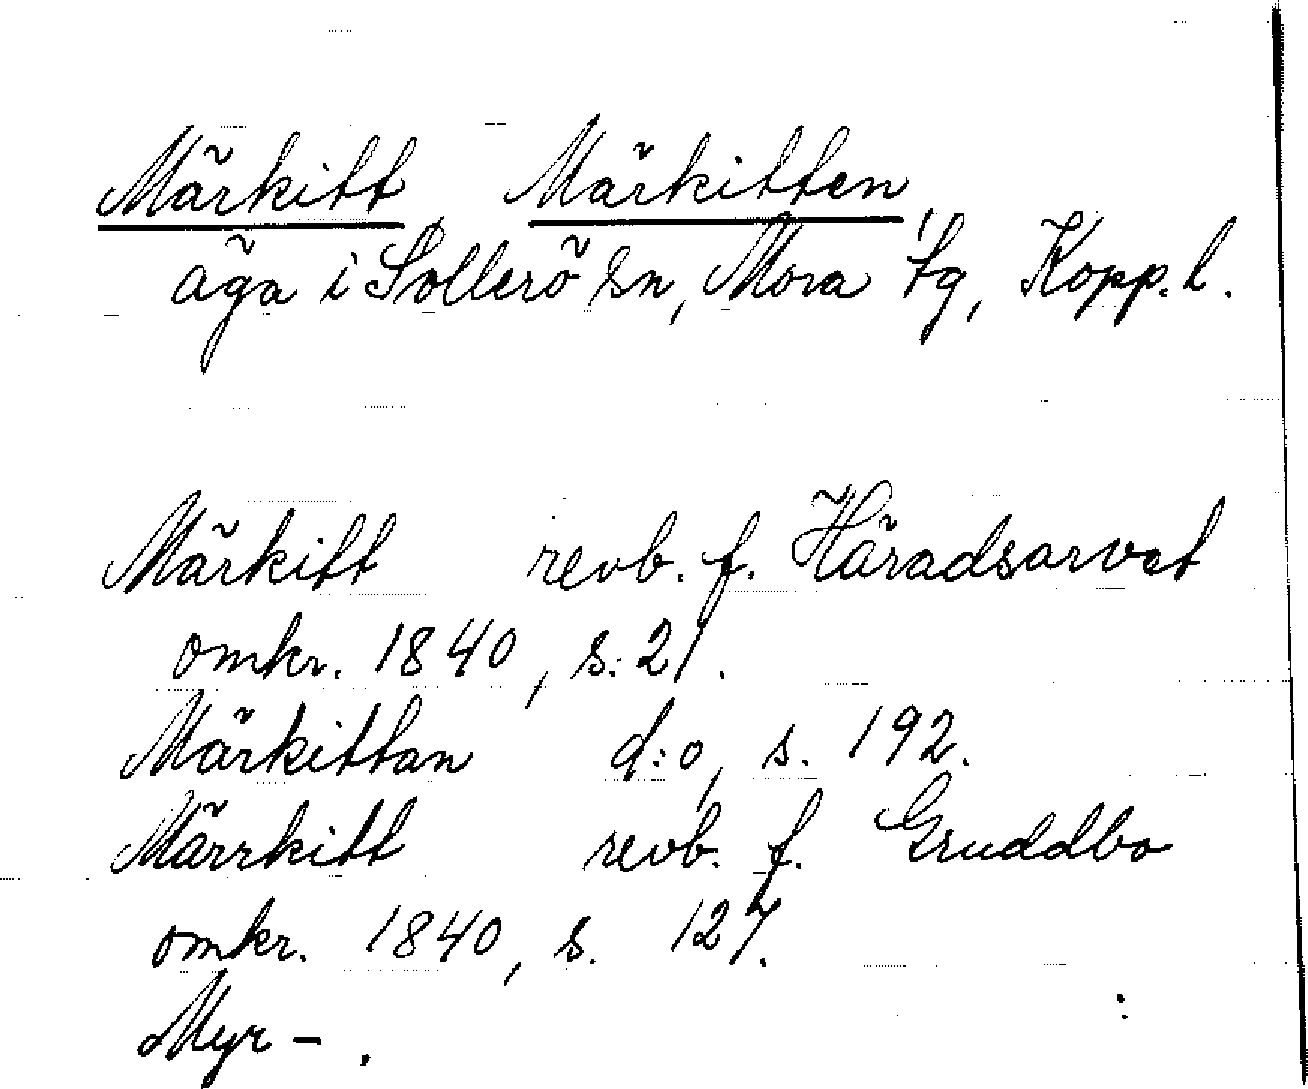 Märkitt Märkitten,
äga i Sollerö sn, Mora tg, Kopp. l.
Märkitt revb. f. Häradsarvet
omkr. 1840, s. 21.
Märkittan d:o, s. 192.
Märrkitt revb. f. Gruddbo
omkr. 1840, s. 127.
Myr - .